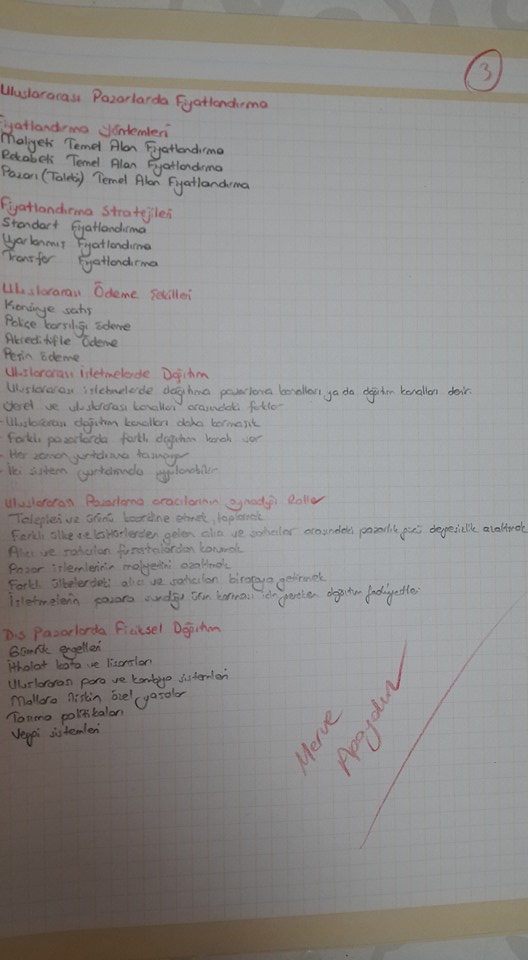 3
Uluslararası Pazarlarda Fiyatlandırma
Fiyatlandırma Yöntemleri
Maliyeti Temel Alan Fiyatlandırma
Rekabeti Temel Alan Fiyatlandırma
Pazarı (Talebi) Temel Alan Fiyatlandırma
Fiyatlandırma Stratejileri
Standart Fiyatlandırma
Uyarlanmış Fiyatlandırma
Transfer Fiyatlandırma
Uluslararası Ödeme Şekilleri
Konsinye satış
Poliçe karşılığı ödeme
Akreditifle Ödeme
Peşin ödeme
Uluslararası İşletmelerde Dağıtım
Uluslararası işletmelerde dağıtıma pazarlama kanalları ya da dağıtım kanalları denir.
Yerel ve uluslararası kanalları arasındaki farklar
- Uluslararası dağıtım kanalları daha karmaşık
- Farklı pazarlarda farklı dağıtım kanalı var
- Her zaman yurtdışına taşınıyor
- İki sistem yurtdışında uygulanabilir.
Uluslararası Pazarlama aracılarının oynadığı Roller
Talepleri ve ürünü koordine etmek, toplamak
Farklı ülke ve kültürlerden gelen alıcı ve satıcılar arasındaki pazarlık gücü dengesizlik azaltmak
Alıcı ve satıcıları fırsatçılardan korumak
Pazar işlemlerinin maliyetini azaltmak
Farklı ülkelerdeki alıcı ve satıcıları biraraya getirmek
İşletmelerin pazara sunduğu ürün karması için gereken dağıtım faaliyetleri
Dış Pazarlarda Fiziksel Dağıtım
Gümrük engelleri
İthalat kota ve lisansları
Uluslararası para ve kambiyo sistemleri
Mallara ilişkin özel yasalar
Taşıma politikaları
Vergi sistemleri
Merve
Apaydın